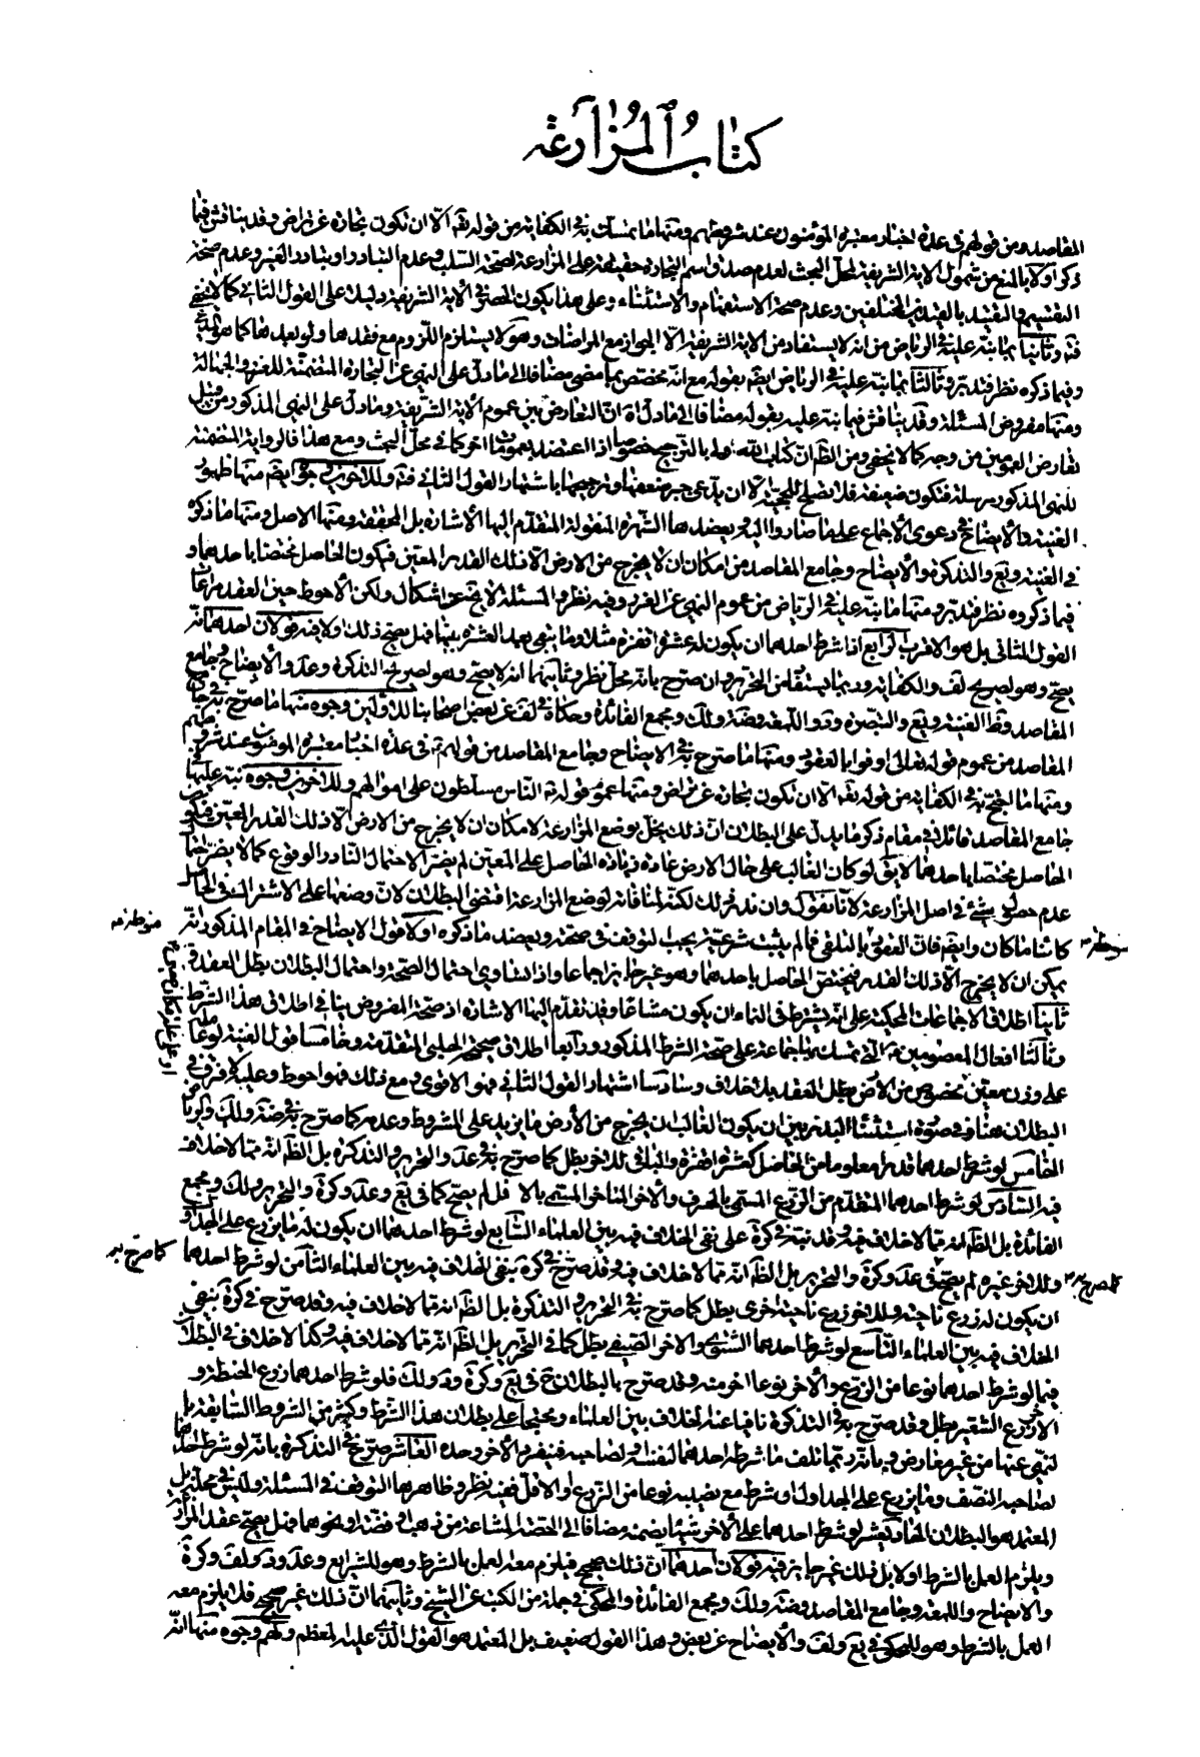 كتاب المزارعة
المقاصد ومن قولهم في عدة اخبار معتبرة المؤمنون عند شروطهم ومنها ما تمسك به في الكفاية من قوله تعم الّا ان تكون تجارة عن تراض وقد يناقش فيما
ذكر اولا بالمنع من شمول الاية الشريفة لمحل البحث لعدم صدق اسم التجارة حقيقة على المزارعة لصحة السلب وعدم التبادر او تبادر الغير وعدم صحة
التقسيم والتقييد بالقيدين المختلفين وعدم صحة الاستفهام والاستثناء وعلى هذا يكون الحصر في الأية الشريفة دليلا على القول الثاني كما لا يخفى
فتدبر وثانيا بما نبه عليه في الرياض من انه لا يستفاد من الاية الشريفة الّا الجواز مع المراضات وهو لا يستلزم اللزوم مع فقدها ولو بعدها كما هو
وفيما ذكره نظر فتدبر وثالثا بما نبه عليه في الرياض ايضم بقوله مع انه مختص بما مضى مضافا الى ما دل على النهي عن التجارة المتضمنة للغرر والجهالة
ومنها مفروض المسئلة وقد يناقش فيما نبه عليه بقوله مضافا الى ما دل اه ان التعارض بين عموم الأية الشريفة وما دل على النهي المذكور من قبيل
تعارض العمومين من وجه كما لا يخفى ومن الظم ان كتاب الله اولى بالترجيح خصوصا اذا اعتضد بعمومات اخر كما في محل البحث ومع هذا فالرواية المتضمنة
للنهي المذكور مرسلة فتكون ضعيفة فلا تصلح للحجية الّا ان يدعى جبر ضعفها وترجيحها باشتهار القول الثاني فتم وللاخرين وجوه ايضم منها ظهور
الغنية والأيضاح في دعوى الأجماع على ما صاروا اليه ويعضدها الشهرة المنقولة المتقدم اليها الاشارة بل المحققة ومنها الاصل ومنها ما ذكره
في الغنية ويع والتذكرة والأيضاح وجامع المقاصد من امكان ان لا يخرج من الارض الّا ذلك القدر المعين فيكون الحاصل مختصا باحدهما و
فيما ذكروه نظر فتدبر ومنها ما نبه عليه في الرياض من عموم النهي عن الغرر وفيه نظر والمسئلة لا تخلو عن اشكال ولكن الأحوط حين العقد مراعاة
القول الثاني بل هو الاقرب الرابع اذا شرط احدهما ان يكون له عشرة اقفزة مثلا وما يبقى بعد العشرة بينهما فهل يصح ذلك او لا فيه قولان احدهما انه
يصح وهو لصريح لف والكفاية وربما يستفاد من التحرير وان صرح بانه محل نظر وثانيهما انه لا يصح وهو لصريح التذكرة وعد والأيضاح وجامع
المقاصد وظ الغنية ويع والتبصرة ود واللمعة وضة ولك ومجمع الفائدة وحكاه في لف عن بعض اصحابنا للاولين وجوه منها ما صرح به في جامع
المقاصد من عموم قوله تعالى اوفوا بالعقود ومنها ما صرح به في الايضاح وجامع المقاصد من قولهم في عدة اخبار معتبرة المؤمنون عند شروطهم
ومنها ما احتج به في الكفاية من قوله تعم الّا ان تكون تجارة عن تراض ومنها عموم قوله الناس مسلطون على اموالهم وللاخرين وجوه نبه عليها في
جامع المقاصد قائلا في مقام ذكر ما يدل على البطلان ان ذلك يخل بوضع المزارعة لامكان ان لا يخرج من الارض الّا ذلك القدر المعين فيكون
الحاصل مختصا باحدهما لا يق لو كان الغالب على حال الارض عادة زيادة الحاصل على المعين لم يضر الاحتمال النادر الوقوع كما لا يضر احتمال
عدم حصول شئ في اصل المزارعة لانا نقول وان ندر ذلك لكنه لمنافاته لوضع المزارعة اقتضى البطلان لان وضعها على الاشتراك في الحاصل
كائنا ما كان وايضم فان العقود بالتلقي فما لم يثبت شرعيته يجب التوقف في صحته ويعضد ما ذكره اولا قول الايضاح في المقام المذكور انه
يمكن ان لا يخرج الّا ذلك القدر فيختص الحاصل باحدهما وهو غير جايز اجماعا واذا تساوى احتمال الصحة واحتمال البطلان بطل العقد و
ثانيا اطلاق الاجماعات المحكية على انه يشترط في النماء ان يكون مشاعا وقد تقدم اليها الاشارة اذ صحة المفروض ينافي اطلاق هذا الشرط
وثالثا افعال المعصومين التي تمسك بها جماعة على صحة الشرط المذكور ورابعا اطلاق صحيحة الحلبي المتقدمة وخامسا قول الغنية لو عامله
على وزن معين مخصوص من الأرض بطل العقد بلا خلاف وسادسا اشتهار القول الثاني فهو الاقوى ومع ذلك فهو احوط وعليه لا فرق في
البطلان هنا وفي صورة استثناء البذر بين ان يكون الغالب ان يخرج من الأرض ما يزيد على المشروط وعدمه كما صرح به في ضة ولك وغيرهما
الخامس لو شرط احدهما قدرا معلوما من الحاصل كعشرة اقفزة والباقي للاخر بطل كما صرح به في عد والتحرير والتذكرة بل الظم انه مما لا خلاف
فيه السادس لو شرط احدهما المتقدم من الزرع المسمى بالحرف والأخر المتاخر المسمى بالافل لم يصح كما في يع وعد وكرة والتحرير ولك ومجمع
الفائدة بل الظم انه مما لا خلاف فيه وقد نبه في كرة على نفي الخلاف فيه بين العلماء السابع لو شرط احدهما ان يكون له ما يزرع على الجداول
وللاخر غيره لم يصح في عد وكرة والتحرير بل الظم انه مما لا خلاف فيه وقد صرح في كرة بنفي الخلاف فيه بين العلماء الثامن لو شرط احدهما
كما صرح به
ان يكون له زرع ناحية وللاخر زرع ناحية اخرى بطل كما صرح به في التحرير والتذكرة بل الظم انه مما لا خلاف فيه وقد صرح في كرة بنفي
الخلاف فيه بين العلماء التاسع لو شرط احدهما الشتوي والاخر الصيفي بطل كما في التحرير بل الظم انه مما لا خلاف فيه وكذا لا خلاف في البطلان
فيما لو شرط احدهما نوعا من الزرع والأخر نوعا اخر منه وقد صرح بالبطلان ح في يع وكرة وضة ولك فلو شرط احدهما زرع الحنطة و
الأخر زرع الشعير بطل وقد صرح به في التذكرة نافيا عنه الخلاف بين العلماء ومحتجا على بطلان هذا الشرط وكثير من الشروط السابقة بانه
نهي عنها من غير معارض وبانه ربما تلف ما شرطه احدهما لنفسه او لصاحبه فينفرد الأخر وحده العاشر صرح في التذكرة بانه لو شرط احدهما
لصاحبه النصف وما يزرع على الجداول او شرط مع نصيبه نوعا من الزرع والاقل ففيه نظر وظاهرها التوقف في المسئلة وليس في محله بل
المعتمد هو البطلان الحاديعشر لو شرط احدهما على الأخر شيئا يضمنه مضافا الى الحصة المشاعة من ذهب او فضة او نحوهما فهل يصح عقد المزارعة
ويلزم العمل بالشرط او لا بل ذلك غير جايز فيه قولان احدهما ان ذلك صحيح فيلزم معه العمل بالشرط وهو للشرايع وعد ود ولف وكرة
والايضاح واللمعة وجامع المقاصد وضة ولك ومجمع الفائدة والمحكي في جملة من الكتب عن الشيخ وثانيهما ان ذلك غير صحيح فلا يلزم معه
العمل بالشرط وهو للمحكي في يع ولف والأيضاح عن بعض وهذا القول ضعيف بل المعتمد هو القول الذي عليه المعظم ولهم وجوه منها انه